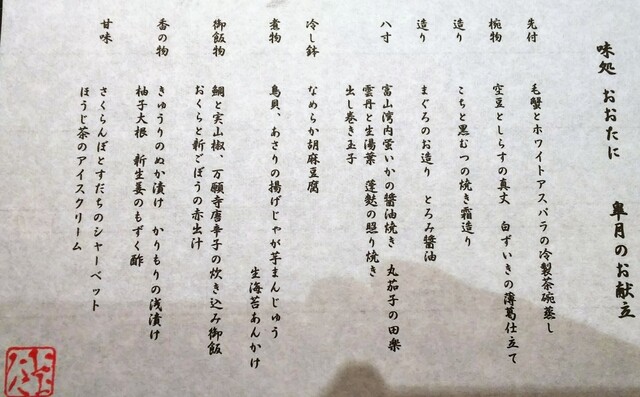 味処 おおたに 皐月のお献立
先付 毛蟹とホワイトアスパラの冷製茶碗蒸し
椀物 空豆としらすの真丈 白ずいきの薄葛仕立て
造り こちと黒むつの焼き霜造り
造り まぐろのお造り とろみ醤油
八寸 富山湾内蛍いかの醤油焼き 丸茄子の田楽
雲丹と生湯葉 蓬麩の照り焼き
出し巻き玉子
冷し鉢 なめらか胡麻豆腐
煮物 鳥貝、あさりの揚げじゃが芋まんじゅう
生海苔あんかけ
御飯物 鯛と実山椒、万願寺唐辛子の炊き込み御飯
おくらと新ごぼうの赤出汁
香の物 きゅうりのぬか漬け かりもりの浅漬け
柚子大根 新生姜のもずく酢
甘味 さくらんぼとすだちのシャーベット
ほうじ茶のアイスクリーム